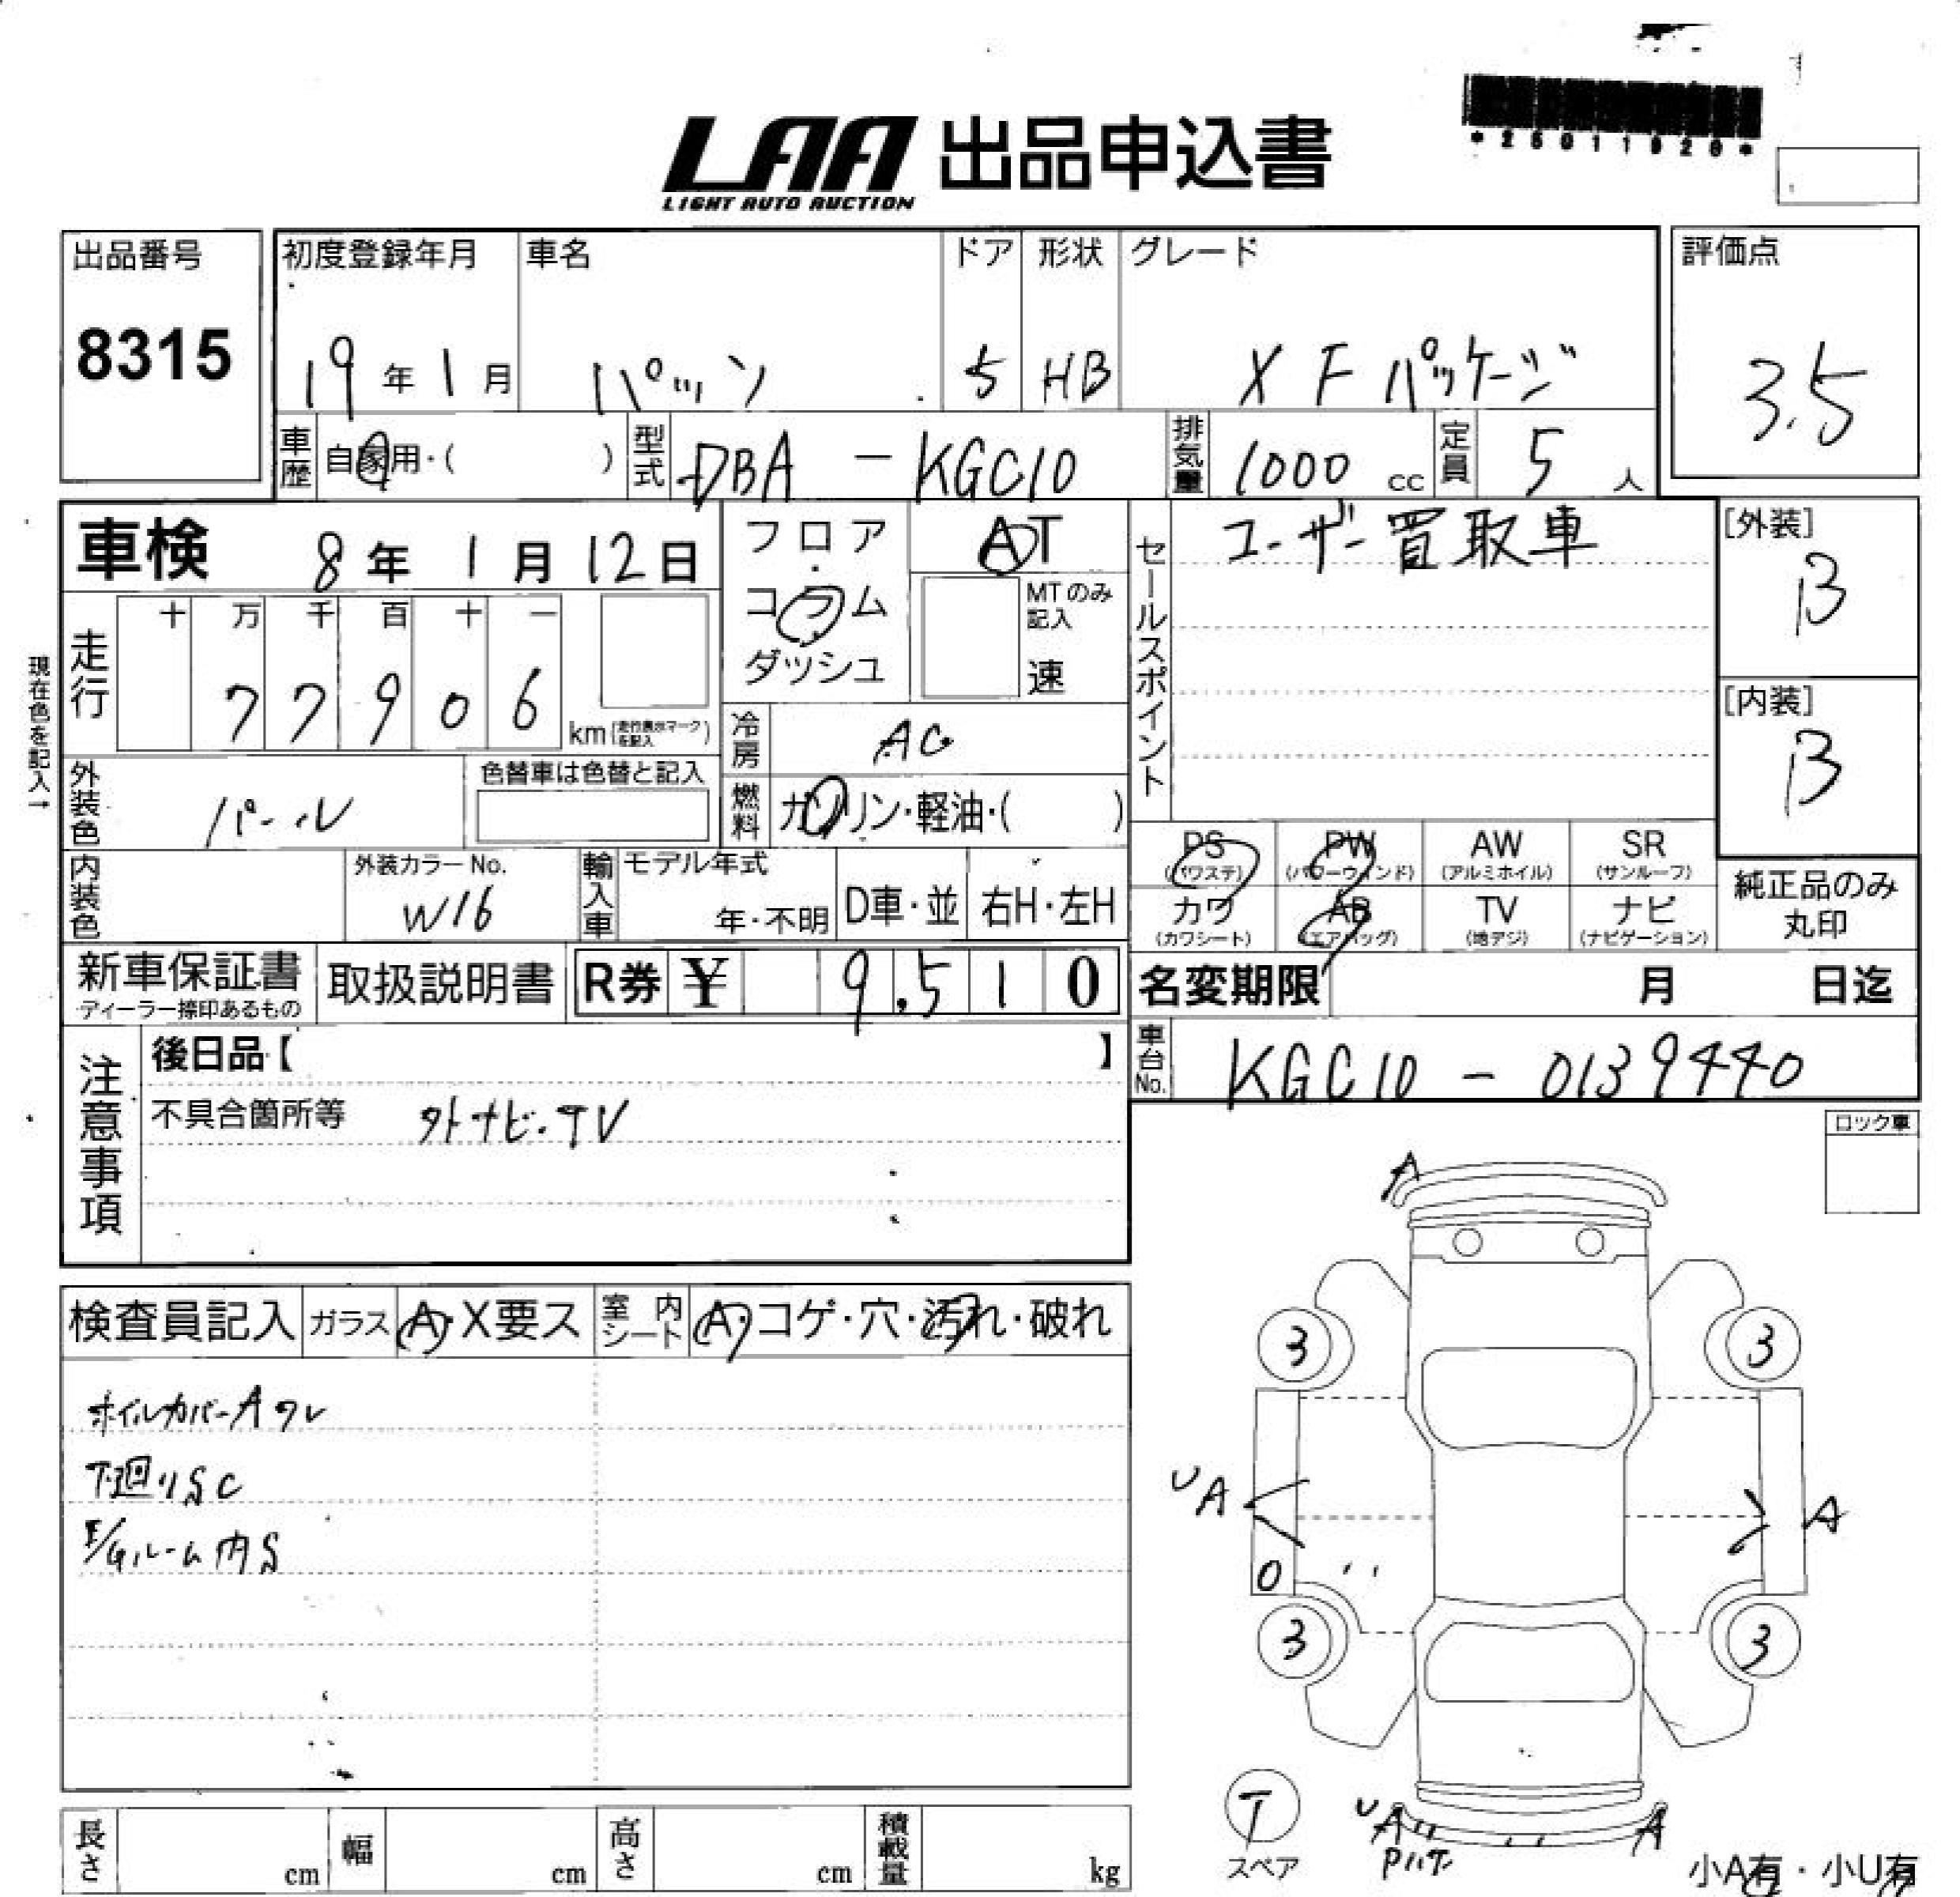 *25011928*
LAA 出品申込書
LIGHT AUTO AUCTION
出品番号
8315
初度登録年月
19年1月
車名
パッソ
ドア
5
形状
HB
グレード
X Fパッケージ
評価点
3.5
車歴
自家用・( )
型式
DBA - KGC10
排気量
1000 cc
定員
5 人
車検 8年 1月 12日
フロア
・
コラム
・
ダッシュ
AT
MTのみ記入
速
セールスポイント
ユーザー買取車
[外装]
B
[内装]
B
現在色を記入→
走行
十 万 千 百 十 一
7 7 9 0 6
km(走行表示マークを記入)
冷房
AC
燃料
ガソリン・軽油・( )
外装色
パール
色替車は色替と記入
内装色
外装カラーNo.
W16
輸入車
モデル年式
年・不明
D車・並
右H・左H
PS
(パワステ)
PW
(パワーウィンド)
AW
(アルミホイル)
SR
(サンルーフ)
カワ
(カワシート)
AB
(エアバッグ)
TV
(地デジ)
ナビ
(ナビゲーション)
純正品のみ
丸印
新車保証書
ディーラー捺印あるもの
取扱説明書
R券 ¥ 9,510
名変期限 月 日迄
車台No.
KGC10 - 0139440
注意事項
後日品【 】
不具合箇所等 外ナビ・TV
ロック車
検査員記入
ガラス
A・X要ス
室内シート
A・コゲ・穴・汚れ・破れ
ホイルカバーAワレ
下廻りSC
E/Gルーム内S
A
3
3
UA
A
3
3
T
スペア
UA
A
小A有・小U有
長さ cm
幅 cm
高さ cm
積載量 kg